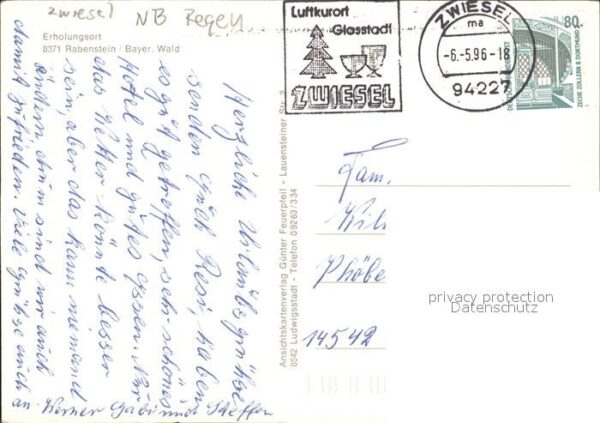 zwiesel
NB Regen
Erholungsort
8371 Rabenstein / Bayer. Wald
Herzliche Urlaubsgrüße
senden Euch Resi, haben
es gut getroffen, sehr schönes
Hotel und gutes Essen. Nur
das Wetter könnte besser
sein, aber das kann niemand
ändern, drum sind wir auch
damit zufrieden. Viele Grüße auch
an Werner Gabi und Steffen
Ansichtskartenverlag Günter Feuerpfeil - Lauensteiner Str. 2
8642 Ludwigsstadt - Telefon 09263/334
Luftkurort
Glasstadt
ZWIESEL
ZWIESEL
ma
-6.-5.96-18
94227
80
DEUTSCHE BUNDESPOST
ZECHE ZOLLERN II DORTMUND
Fam.
Wil
Phöbe
14542
privacy protection
Datenschutz